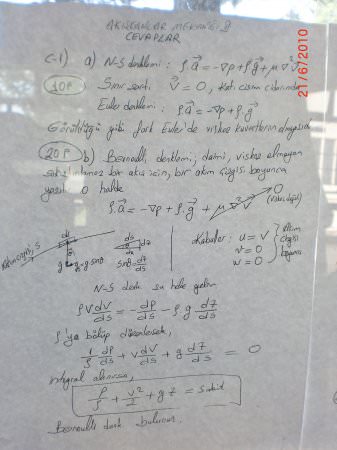 AKIŞKANLAR MEKANİĞİ
CEVAPLAR
21/6/2010
C-1) a) N-S denklemi: ρ a⃗ = -∇p + ρ g⃗ + μ ∇² v⃗
10P Sınır şartı: v⃗ = 0, Katı cisim
Euler denklemi: ρ a⃗ = -∇p + ρ g⃗
Görüldüğü gibi fark Euler'de viskoz kuvvetlerin olmayışıdır
20P b) Bernoulli denklemi; daimi, viskoz olmayan
bir akış için, bir akım çizgisi boyunca
0 halde
ρ. a⃗ = -∇p + ρ. g⃗ + μ ∇² v⃗ 0
ds
dz
g g sinθ
ds dz
sinθ = dz/ds
Kabuller: u = V
v = 0
w = 0
Akım çizgisi boyunca
N-S denk. şu hale gelir
ρV dV/ds = - dp/ds - ρ g dz/ds
ρ'ya bölüp düzenlersek,
1/ρ dp/ds + V dV/ds + g dz/ds = 0
integral alınırsa,
p/ρ + V²/2 + gz = sabit
Bernoulli denk. bulunur.